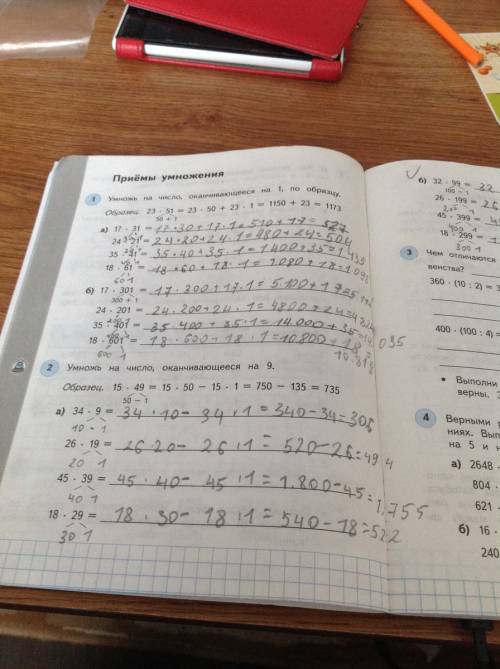 Приёмы умножения
1 Умножь на число, оканчивающееся на 1, по образцу.
Образец. 23 · 51 = 23 · 50 + 23 · 1 = 1150 + 23 = 1173
50 + 1
а) 17 · 31 = 17·30+17·1=510+17=527
24 · 21 = 24·20+24·1=480+24=504
35 · 41 = 35·40+35·1=1400+35=1435
18 · 61 = 18·60+18·1=1.080+18=1.098
60 1
б) 17 · 301 = 17·300+17·1=5.100+17=5.117
300 + 1
24 · 201 = 24·200+24·1=4800+24=4.824
35 · 401 = 35·400+35·1=14.000+35=14.035
18 · 601 = 18·600+18·1=10.800+18=
600 1
10.818
2 Умножь на число, оканчивающееся на 9.
Образец. 15 · 49 = 15 · 50 − 15 · 1 = 750 − 135 = 735
50 − 1
а) 34 · 9 = 34·10−34·1=340−34=306
10 − 1
26 · 19 = 26·20−26·1=520−26=494
20 1
45 · 39 = 45·40−45·1=1.800−45=1.755
40 1
18 · 29 = 18·30−18·1=540−18=522
30 1
б) 32 · 99 = 32
100 − 1
26 · 199 = 26
200
45 · 399 =
400 1
18 · 299 =
300 1
3 Чем отличаются
венства?
360 · (10 : 2) = 3
400 · (100 : 4) =
• Выполни
верны.
4 Верными
ниях. Вып
на 5 и н
а) 2648
804 ·
621
б) 16 ·
240